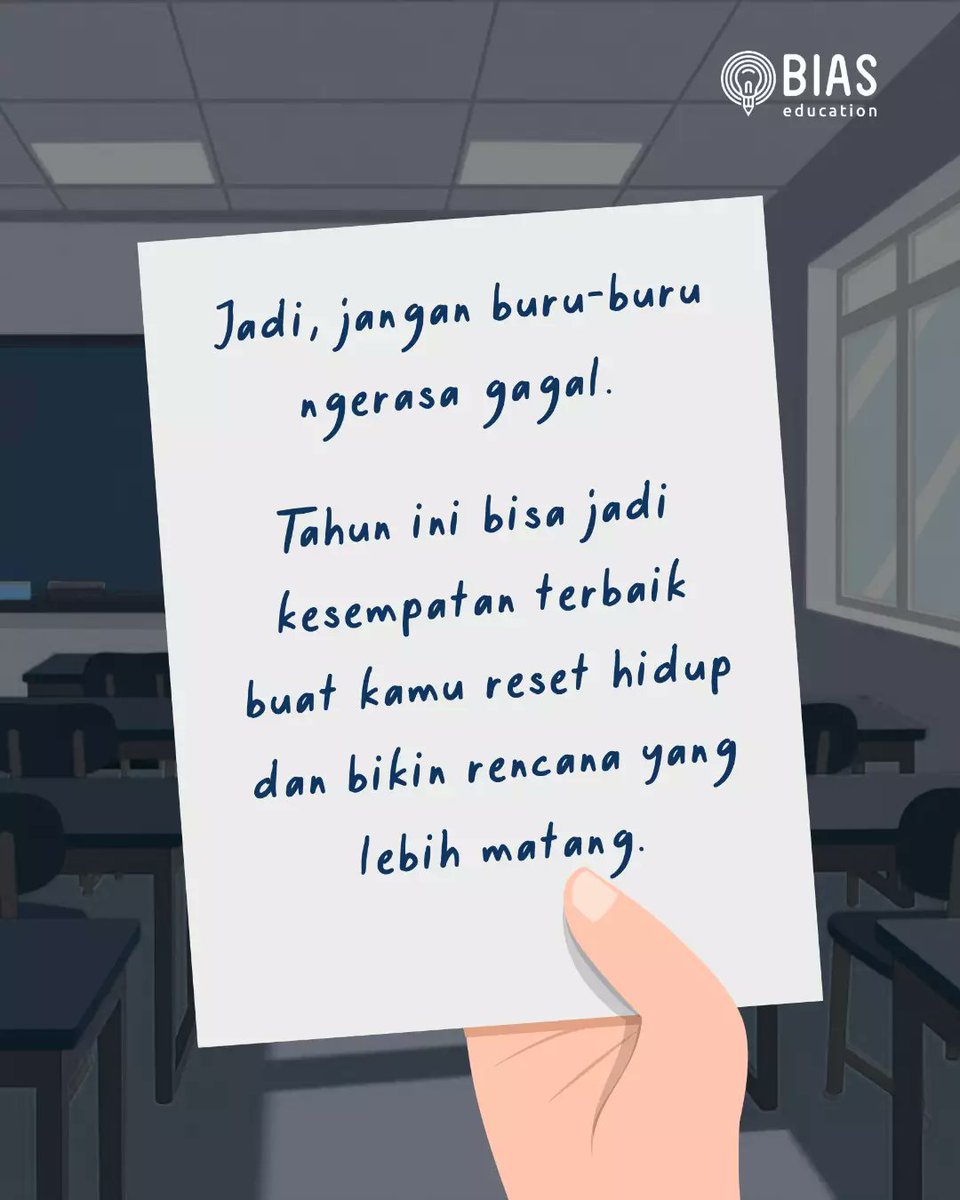 BIAS
education
Jadi, jangan buru-buru
ngerasa gagal.
Tahun ini bisa jadi
kesempatan terbaik
buat kamu reset hidup
dan bikin rencana yang
lebih matang.